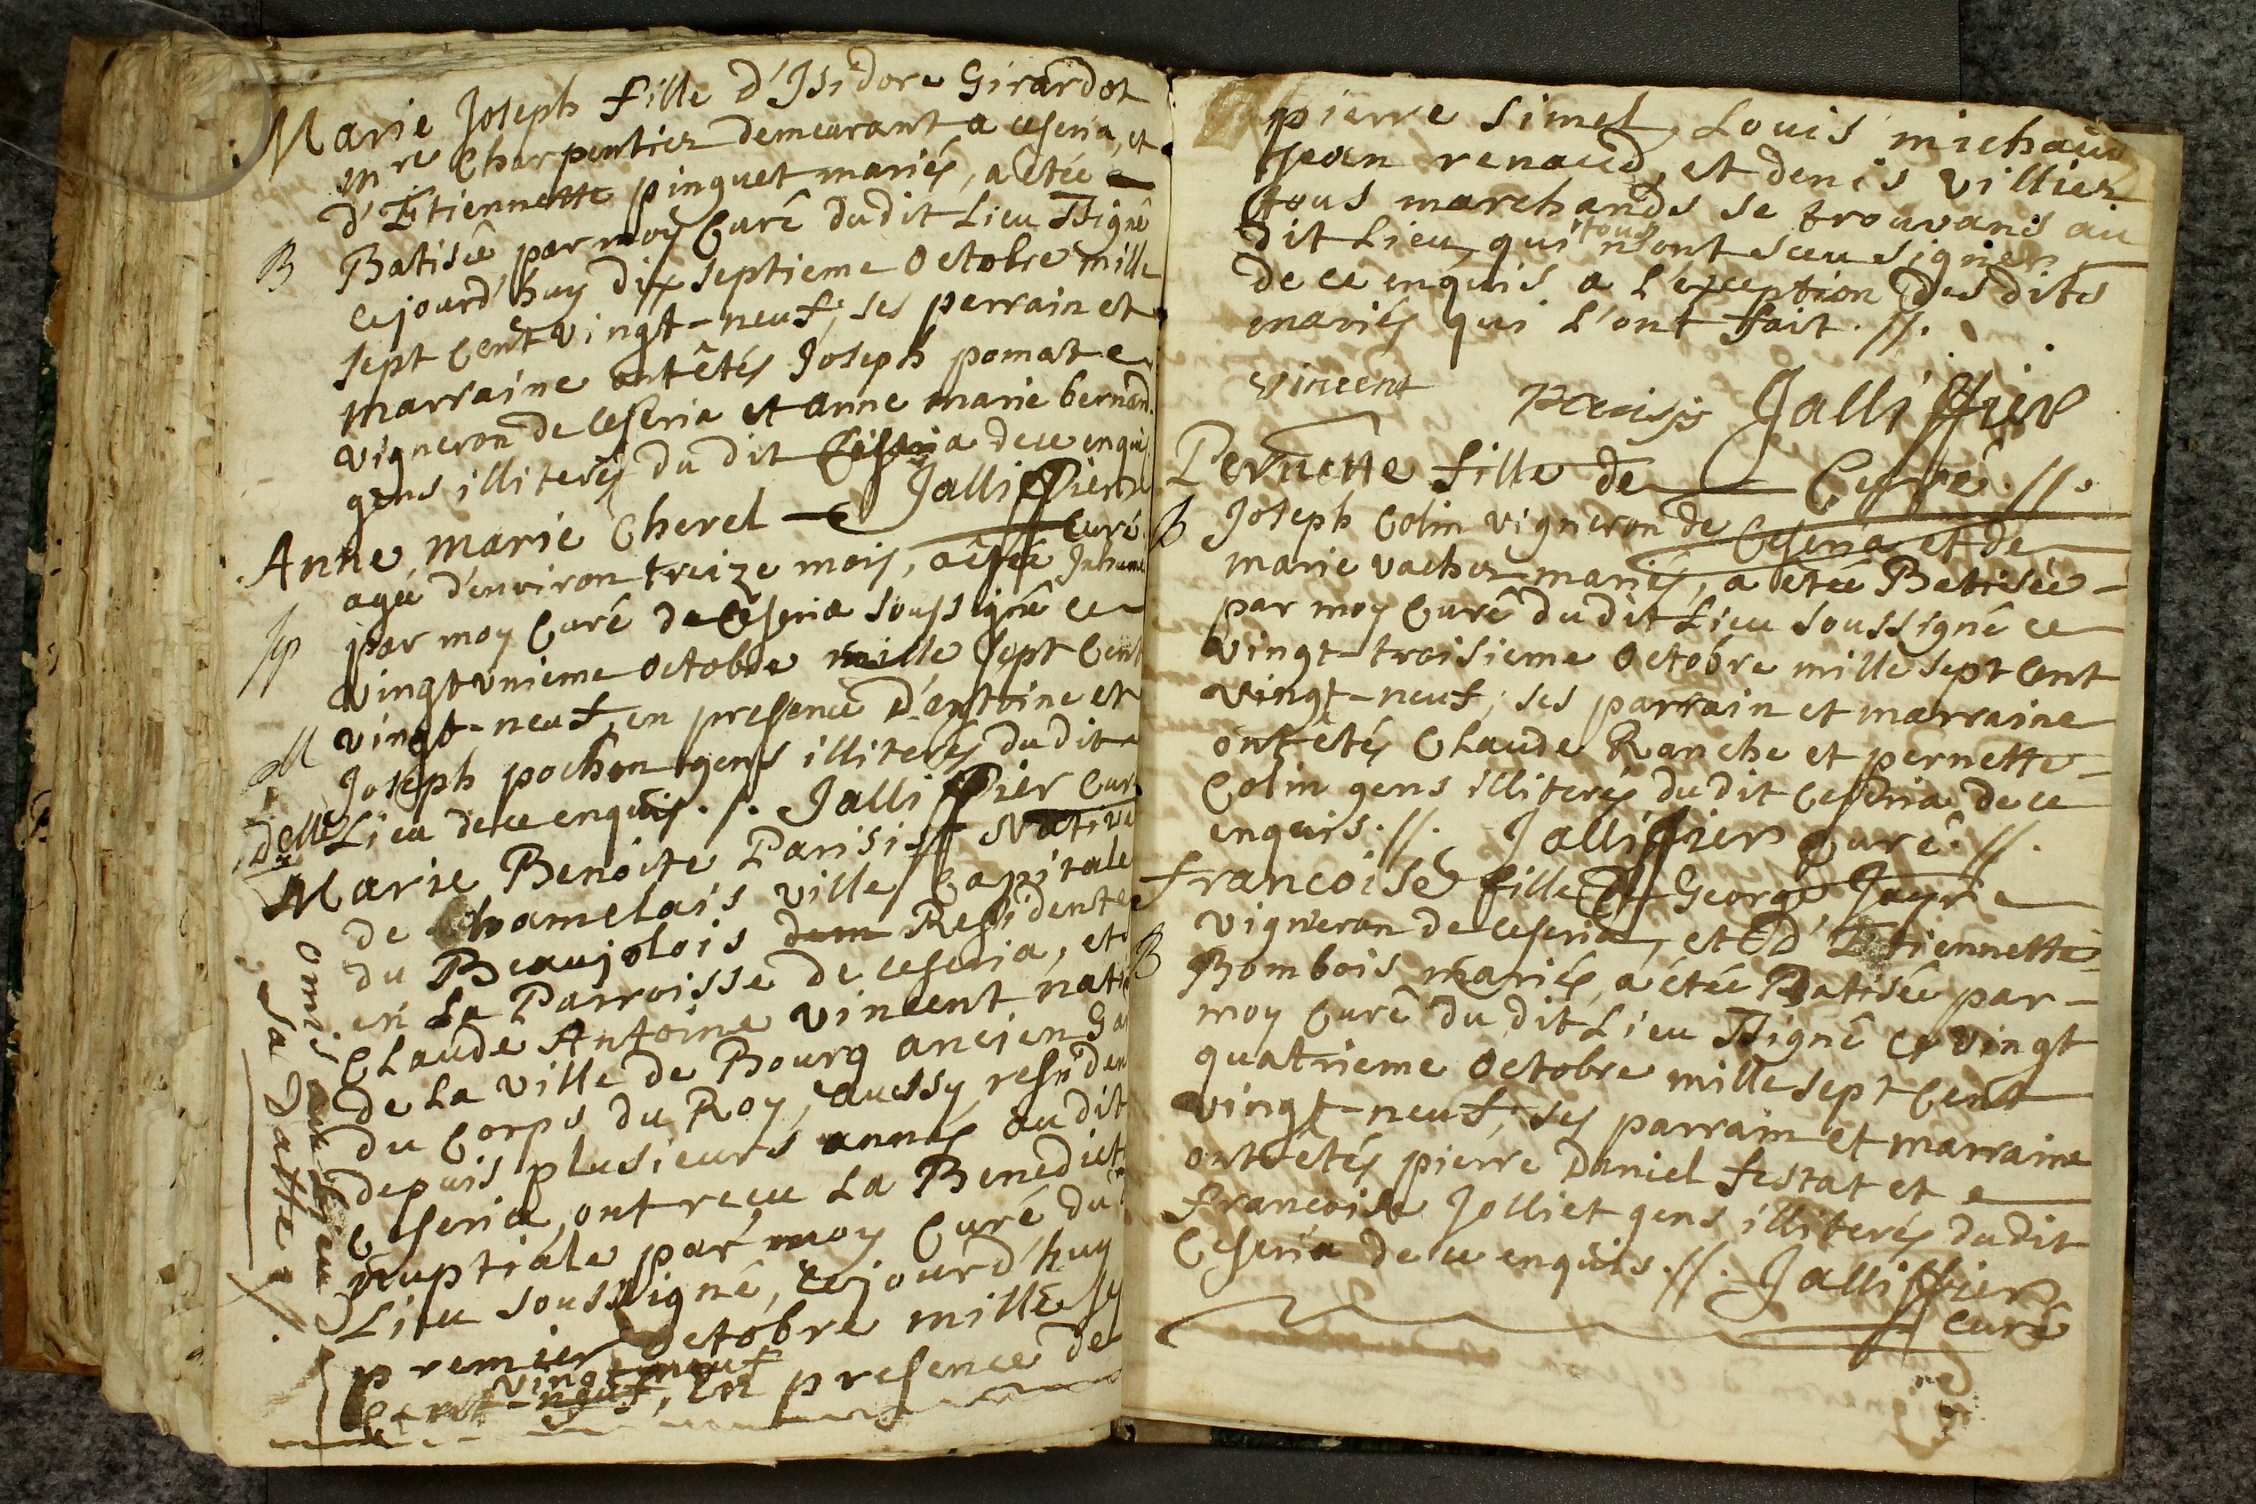 Marie Joseph fille d'Isidore Girardot
mre Charpentier demeurant a ceseria, et
d'Etiennette pinguet mariés, a etée
B Batisée par moy Curé dudit Lieu ssigné
cejourd'huy dix septieme Octobre mille
sept Cent vingt-neuf; ses perrain et
marraine ont êtés Joseph pomat e
vigneron de Ceseria et anne marie bernard
gens illiterés du dit Ceseria de ce enquis
Jalliffier
Curé
Anne marie Cherel
agée d'environ treize mois, a êtée Inhumé
par moy Curé de Ceseria soussigné ce
vingt vnieme octobre mille sept Cent
vingt-neuf, en presence d'entoine et
M Joseph pochon gens illiterés dudit
Lieu de ce enquis ./. Jalliffier Curé
Delle
Marie Benoite Parisis Native
de Chamelais ville Capitale
du Beaujolois dem Residente
en La Parroisse de Ceseria, et
Claude Antoine Vincent natif
de La ville de Bourg ancien Ga
du Corps du Roy, aussy residen
depuis plusieurs annés au dit
Ceseria, ont receu La Benedict
nuptiale par moy Curé du
Lieu soussigné, cejourd'huy
premier Octobre mille sep
vingt neuf
Cent-neuf, en presence de
omis
sa datte ./.
pierre simel, Louis michaud
jean renaud, et denis villier
tous marchands se trouvans au
tous
dit Lieu, qui n'ont sceu signer
de ce enquis a L'exception des dits
mariés qui L'ont fait .//.
vincent Parisis Jalliffier
Curé .//.
Pernette fille de
B Joseph Colin vigneron de Ceseria et de
marie vacher mariés, a êtée Batisée
par moy Curé du dit Lieu soussigné ce
vingt-troisieme Octobre mille sept Cent
vingt-neuf; ses parrain et marraine
ont etés Claude Ranche et pernette
Colin gens illiterés du dit Ceseria de ce
enquis .//. Jalliffier Curé .//.
francoise fille de George Jayr
vigneron de Ceseria, et d'Etiennette
B Bombois mariés, a étée Batisée par
moy Curé du dit Lieu ssigné ce vingt
quatrieme Octobre mille sept Cent
vingt-neuf; ses parrain et marraine
ont etés pierre Daniel festat et
francoise Jolliet gens illiterés dudit
Ceseria de ce enquis .//. Jalliffier
Curé